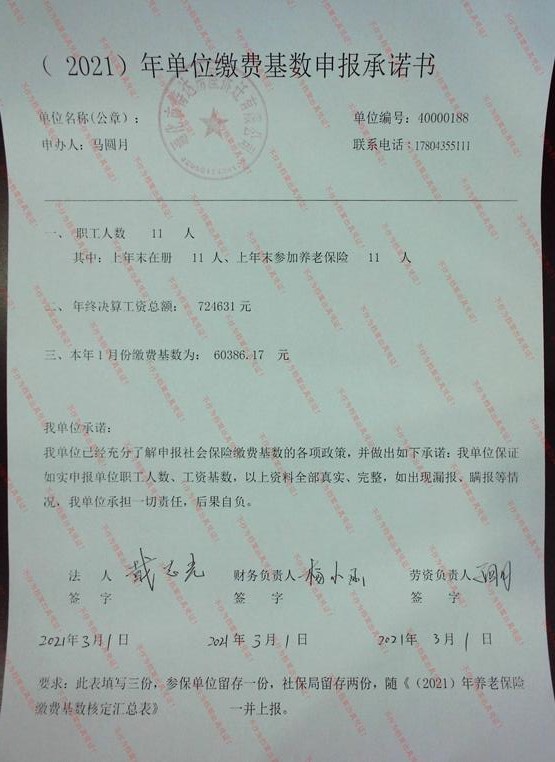 （ 2021）年单位缴费基数申报承诺书
单位名称(公章)： 单位编号：40000188
申办人：马圆月 联系电话：17804355111
一、 职工人数 11 人
其中：上年末在册 11 人、上年末参加养老保险 11 人
二、年终决算工资总额： 724631 元
三、本年1月份缴费基数为： 60386.17 元
我单位承诺：
我单位已经充分了解申报社会保险缴费基数的各项政策，并做出如下承诺：我单位保证
如实申报单位职工人数、工资基数，以上资料全部真实、完整，如出现漏报、瞒报等情
况，我单位承担一切责任，后果自负。
法 人 财务负责人 劳资负责人
签 字 签 字 签 字
2021年3月1日 2021年3月1日 2021年3月1日
要求：此表填写三份，参保单位留存一份，社保局留存两份，随《（2021）年养老保险
缴费基数核定汇总表》 一并上报。